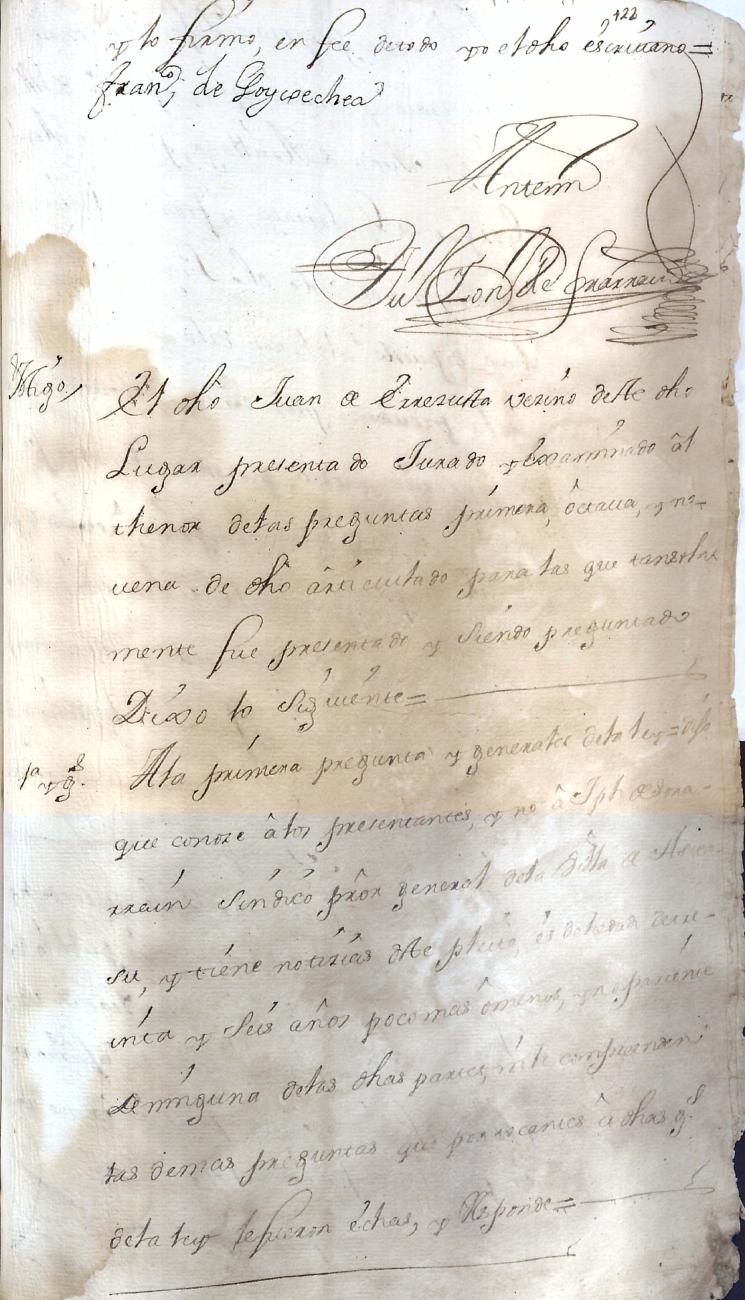 422
y lo firmo, en fee de todo yo el dho escriuano=
Franco de Goycoechea
Antemi
Testigo,
El dho Juan de Errezusta vezino deste dho
Lugar presentado Jurado y examinado al
thenor delas preguntas primera, octaua, y no-
uena de dho articulado para las que tansola
mente fue presentado y siendo preguntado
Dixo lo siguiente=
1a y gs.
Ala primera pregunta y generales dela ley= dijo
que conoze alos presentantes, y no a Jph de
rrain sindico pror general dela Villa de
su, y tiene notizias deste pleito, es de hedad de tre-
inta y seis años poco mas ômenos, y no pariente
de ninguna delas dhas partes, ni le comprenden
las demas preguntas que por tocantes â dhas gs
dela ley le fueron echas, y Responde=